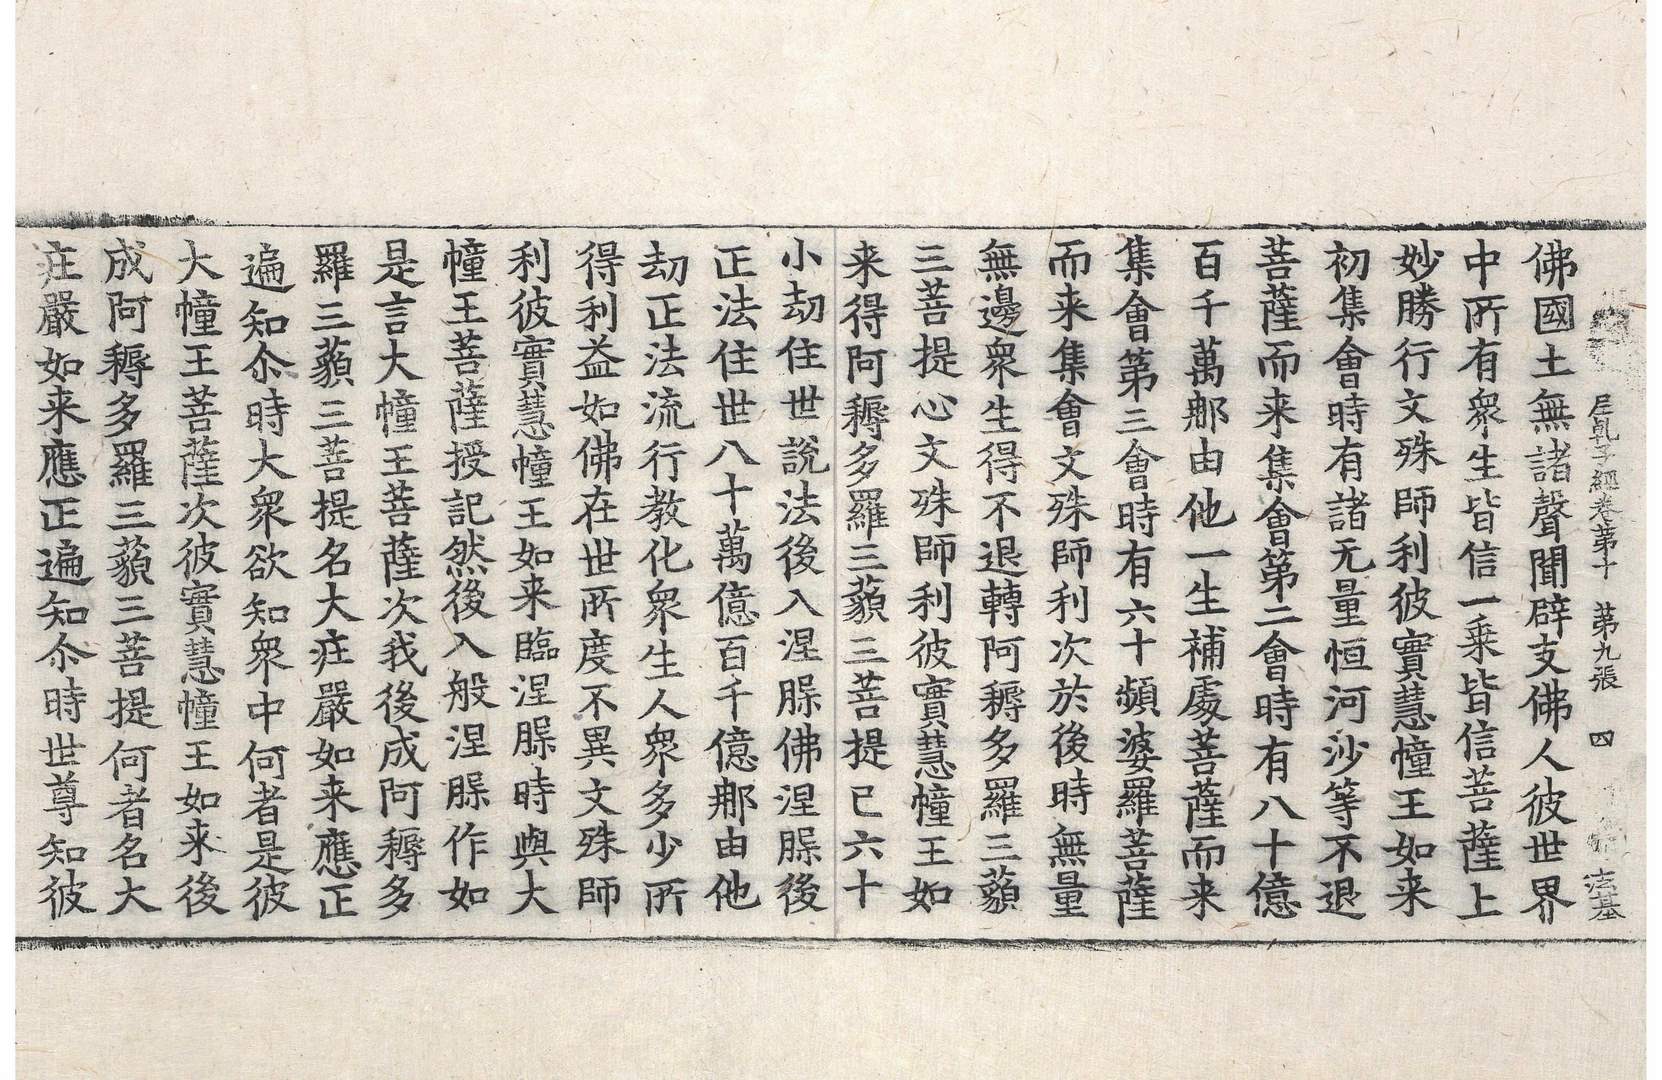 尼乹子經卷第十　第九張　四
佛國土無諸聲聞辟支佛人彼世界
中所有衆生皆信一乗皆信菩薩上
妙勝行文殊師利彼實慧幢王如来
初集會時有諸无量恒河沙等不退
菩薩而来集會第二會時有八十億
百千萬那由他一生補處菩薩而来
集會第三會時有六十頻婆羅菩薩
而来集會文殊師利次於後時無量
無邊衆生得不退轉阿耨多羅三藐
三菩提心文殊師利彼實慧幢王如
来得阿耨多羅三藐三菩提已六十
小劫住世說法後入涅槃佛涅槃後
正法住世八十萬億百千億那由他
劫正法流行教化衆生人衆多少所
得利益如佛在世所度不異文殊師
利彼實慧幢王如来臨涅槃時與大
幢王菩薩授記然後入般涅槃作如
是言大幢王菩薩次我後成阿耨多
羅三藐三菩提名大庄嚴如来應正
遍知尒時大衆欲知衆中何者是彼
大幢王菩薩次彼實慧幢王如来後
成阿耨多羅三藐三菩提何者名大
庄嚴如来應正遍知尒時世尊知彼